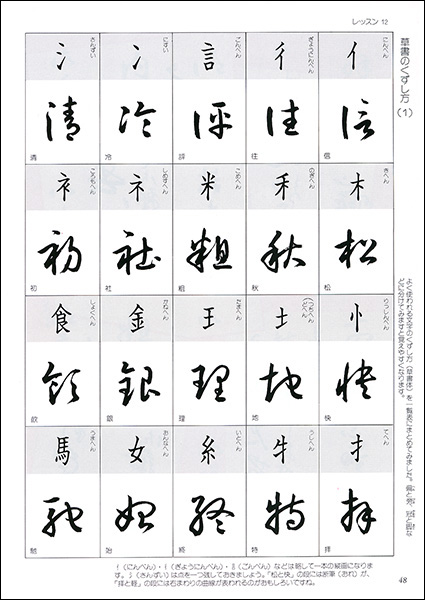 レッスン 12
草書のくずし方(1)
よく使われる文字のくずし方(草書体)を一覧表にまとめてみました。扁と旁、冠と脚な
どに分けてみますと覚えやすくなります。
にんべん
亻
信
信
ぎょうにんべん
彳
往
往
ごんべん
言
評
評
にすい
冫
冷
冷
さんずい
氵
清
清
きへん
木
松
松
のぎへん
禾
秋
秋
こめへん
米
粗
粗
しめすへん
ネ
社
社
ころもへん
衤
初
初
りっしんべん
忄
快
快
つちへん
(どへん)
土
地
地
たまへん
王
理
理
かねへん
金
銀
銀
しょくへん
食
飲
飲
てへん
扌
拝
拝
うしへん
牛
特
特
いとへん
糸
終
終
おんなへん
女
始
始
うまへん
馬
馳
馳
(にんべん)・(ぎょうにんべん)・(ごんべん)などは略して一本の縦画になりま
す。氵(さんずい)は点を一つ強しておきましょう。「松と快」の段には折筆(おれ)が、
「拝と軽」の段には右まわりの曲線が表われるのがおもしろいですね。
48